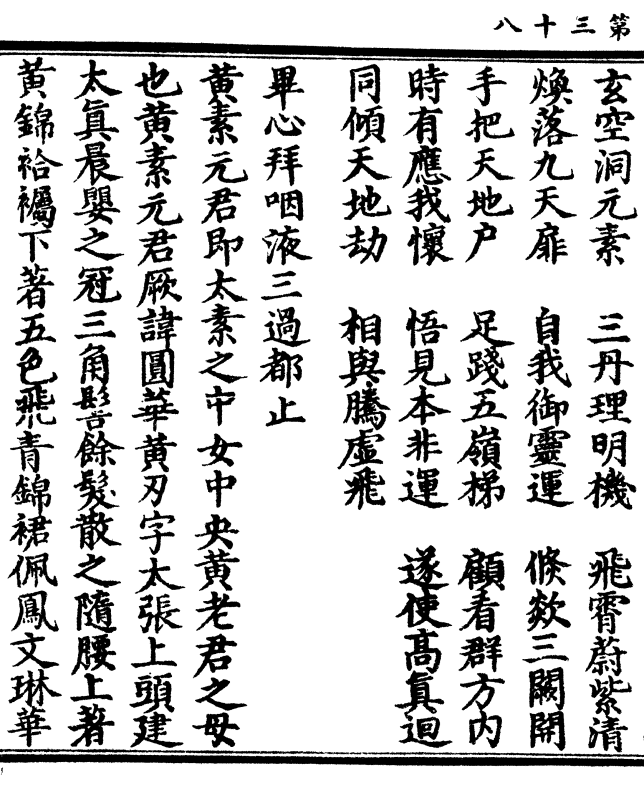 第三十八
玄空洞元素　三丹理明機　飛霄蔚紫清
煥落九天扉　自我御靈運　倐欻三闕開
手把天地户　足踐五嶺梯　顧看群方内
時有應我懷　悟見本非運　遂使高真迴
同傾天地劫　相與騰虛飛
畢心拜咽液三過都止
黄素元君即太素之中女中央黄老君之母
也黄素元君厥諱圓華黄刃字太張上頭建
太真晨嬰之冠三角髻餘髮散之隨腰上著
黄錦袷襡下著五色飛青錦裙佩鳳文琳華